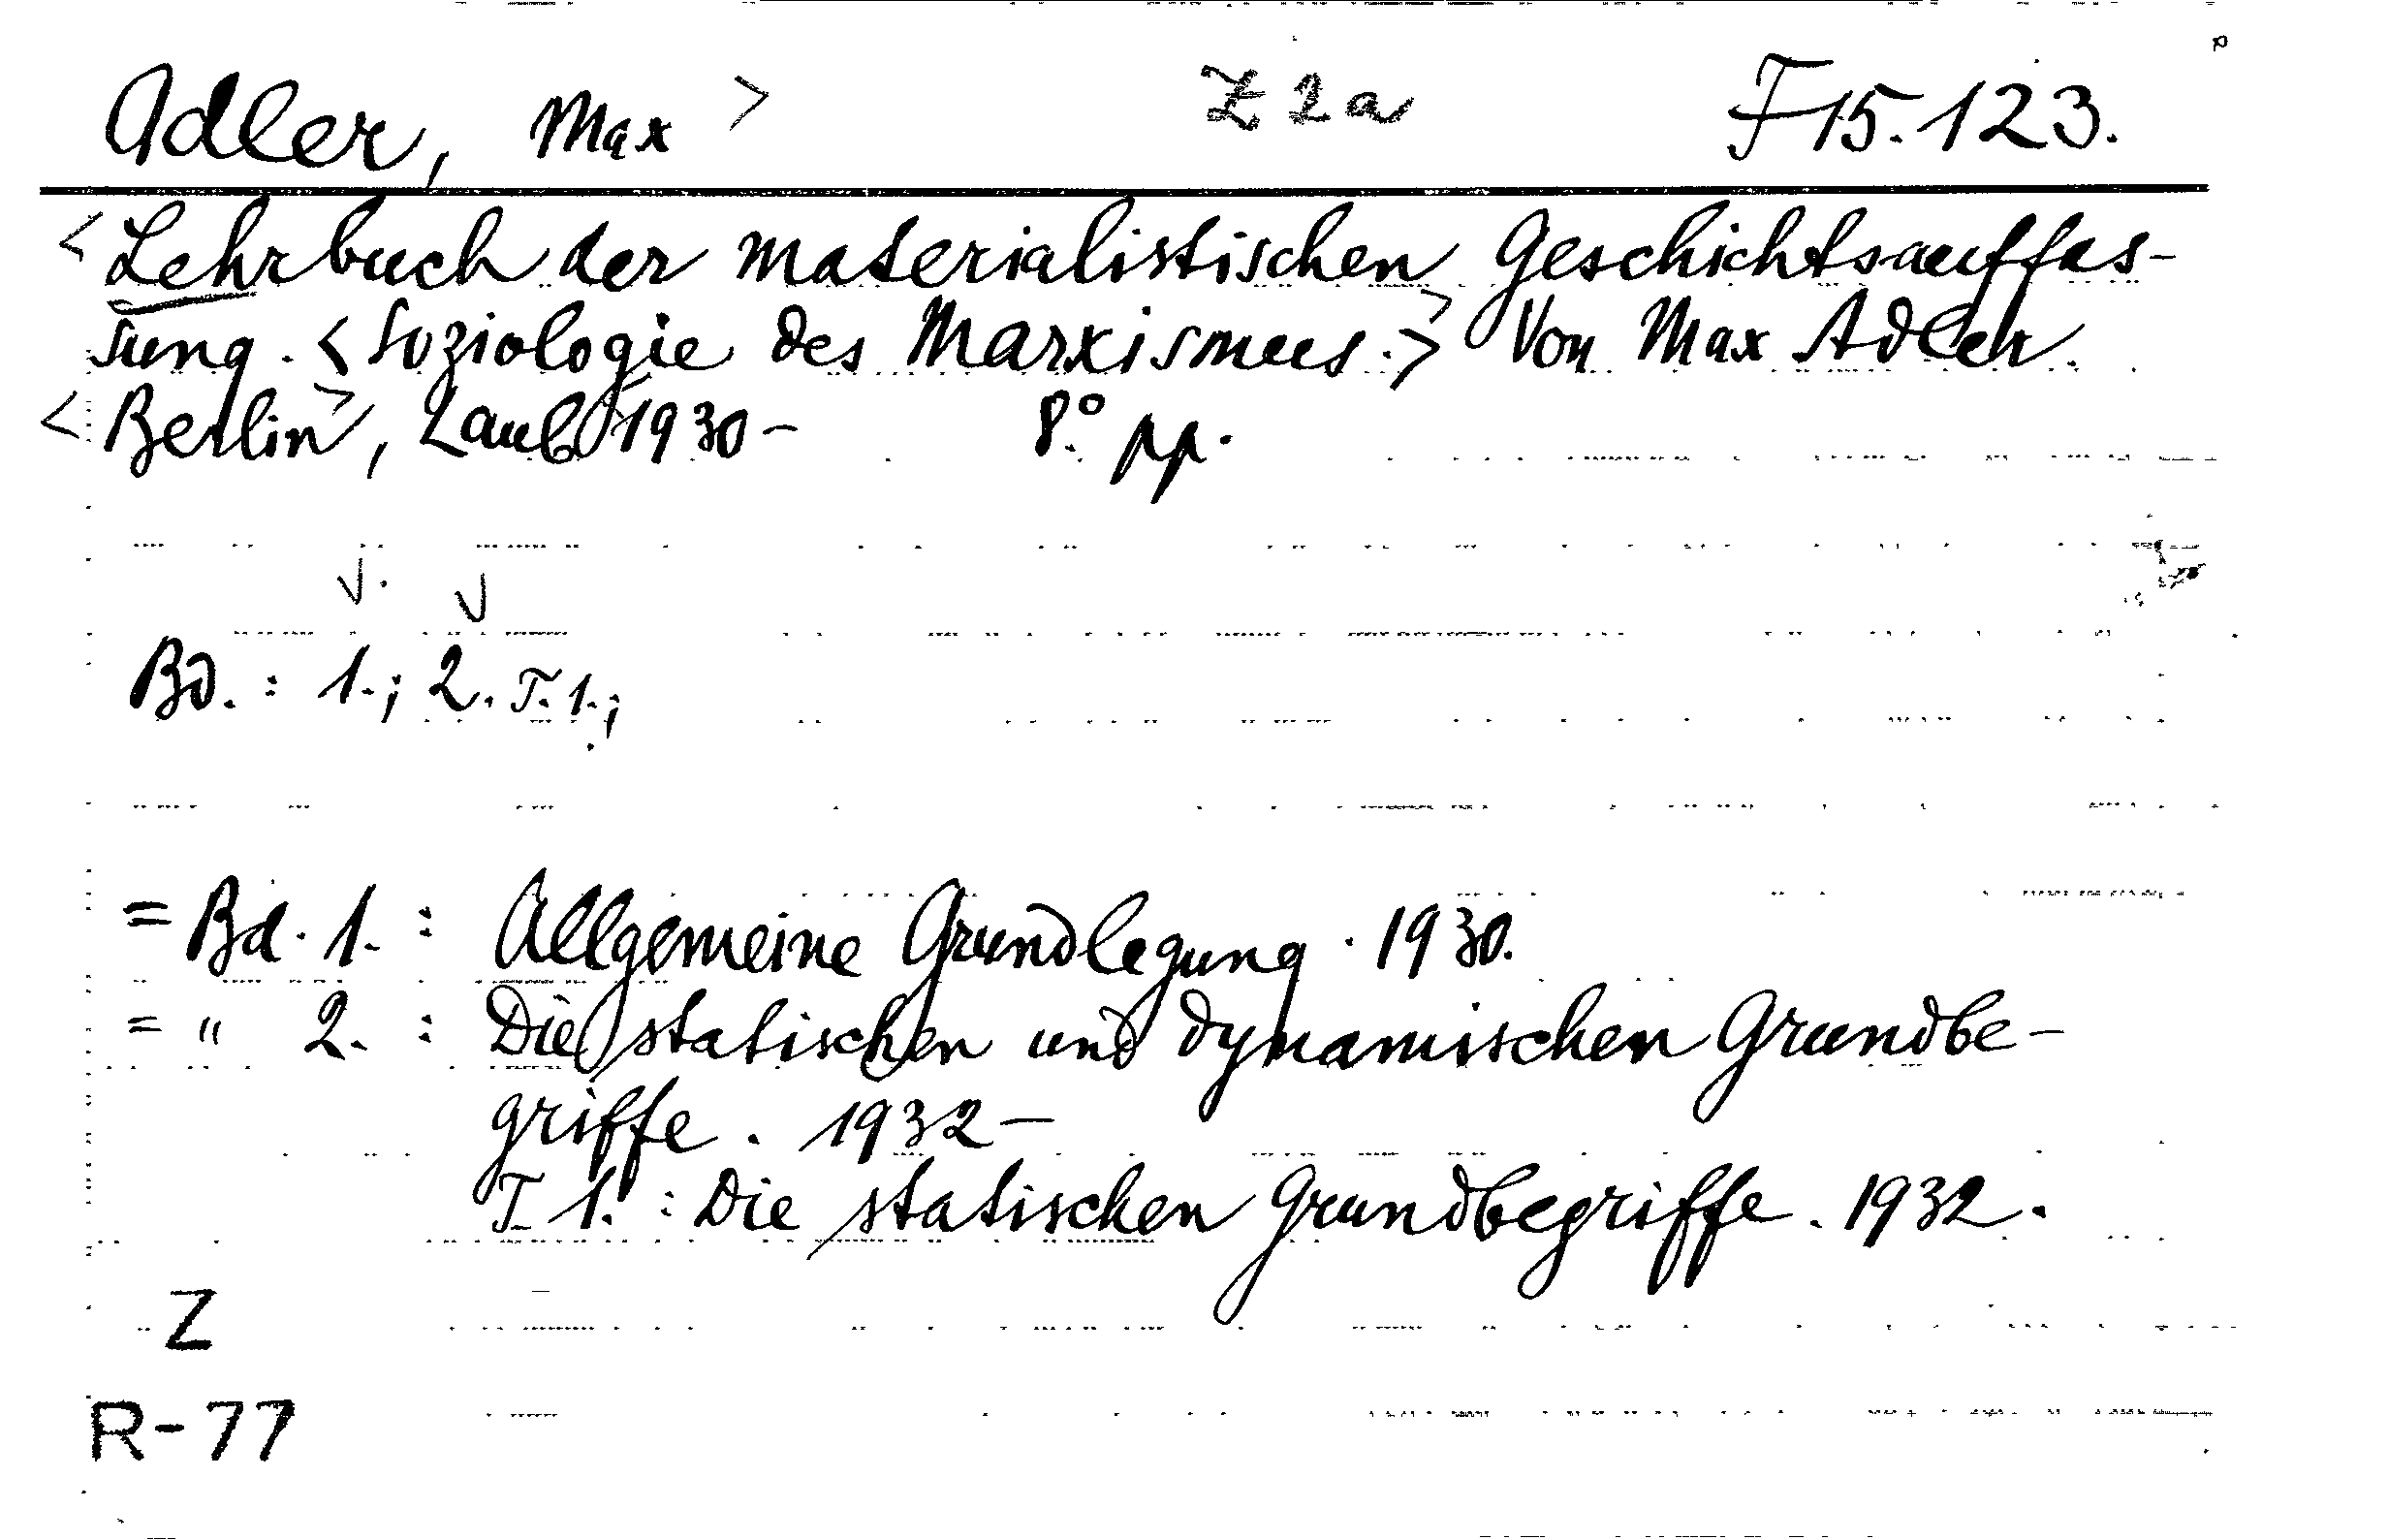 Adler, Max > Z 2 a F 15.123.
< Lehrbuch der materialistischen Geschichtsauffas-
sung. < Soziologie des Marxismus. > > Von Max Adler.
< Berlin >, Laub 1930 - 8.° pp.
Bd. : 1.; 2. T. 1.;
= Bd. 1. : Allgemeine Grundlegung. 1930.
= " 2. : Die statischen und dynamischen Grundbe-
griffe. 1932 -
T. 1. : Die statischen Grundbegriffe. 1932.
Z
R-77